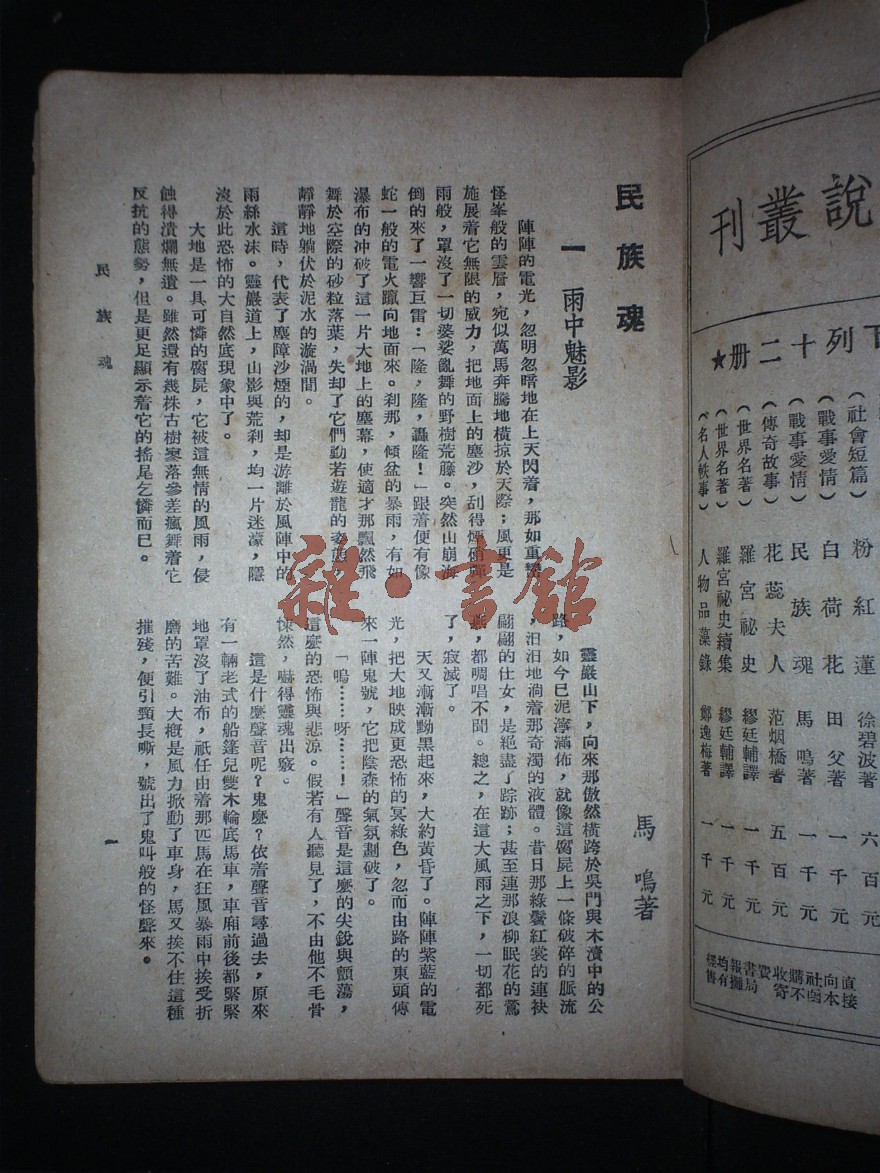 說叢刊
下列十二册★
（社會短篇）　粉紅蓮　徐碧波著　六百元
（戰事愛情）　白荷花　田父著　一千元
（戰事愛情）　民族魂　馬鳴著　一千元
（傳奇故事）　花蕊夫人　范烟橋著　五百元
（世界名著）　羅宮祕史　繆廷輔譯　一千元
（世界名著）　羅宮祕史續集　繆廷輔譯　一千元
（名人軼事）　人物品藻錄　鄭逸梅著　一千元
直接
向本
社函
購不
收寄
費
書局
報攤
均有
民族魂
馬鳴著
一　雨中魅影
陣陣的電光，忽明忽暗地在上天閃着，那如重巒
怪峯般的雲層，宛似萬馬奔騰地橫掠於天際；風更是
施展着它無限的威力，把地面上的塵沙，刮得煙硝彈
雨般，罩沒了一切婆娑亂舞的野樹荒藤。突然山崩海
倒的來了一響巨雷：「隆，隆，轟隆！」跟着便有像
蛇一般的電火躐向地面來。刹那，傾盆的暴雨，有如
瀑布的冲破了這一片大地上的塵幕，使適才那飄然飛
舞於空際的砂粒落葉，失却了它們動若遊龍的姿態，
靜靜地躺伏於泥水的漩渦間。
這時，代表了塵障沙煙的，却是游離於風陣中的
雨絲水沫。靈巖道上，山影與荒刹，均一片迷濛，隱
沒於此恐怖的大自然底現象中了。
大地是一具可憐的腐屍，它被這無情的風雨，侵
蝕得潰爛無遺。雖然還有幾株古樹寥落參差瘋舞着它
反抗的態勢，但是更足顯示着它的搖尾乞憐而已。
靈巖山下，向來那傲然橫跨於吳門與木瀆中的公
路，如今已泥濘滿佈，就像這腐屍上一條破碎的脈流
，汩汩地淌着那奇濁的液體。昔日那綠鬢紅裳的連袂
翩翩的仕女，是絕盡了踪跡；甚至連那浪柳眠花的鶯
燕，都啁唱不聞。總之，在這大風雨之下，一切都死
了，寂滅了。
天又漸漸黝黑起來，大約黃昏了。陣陣紫藍的電
光，把大地映成更恐怖的冥綠色，忽而由路的東頭傳
來一陣鬼號，它把陰森的氣氛劃破了。
「嗚……呀……！」聲音是這麽的尖銳與顫蕩，
這麽的恐怖與悲涼。假若有人聽見了，不由他不毛骨
悚然，嚇得靈魂出竅。
這是什麽聲音呢？鬼麽？依着聲音尋過去，原來
有一輛老式的船篷兒雙木輪底馬車，車廂前後都緊緊
地罩沒了油布，祇任由着那匹馬在狂風暴雨中挨受折
磨的苦難。大概是風力掀動了車身，馬又挨不住這種
摧殘，便引頸長嘶，號出了鬼叫般的怪聲來。
民族魂
一
雜·書館